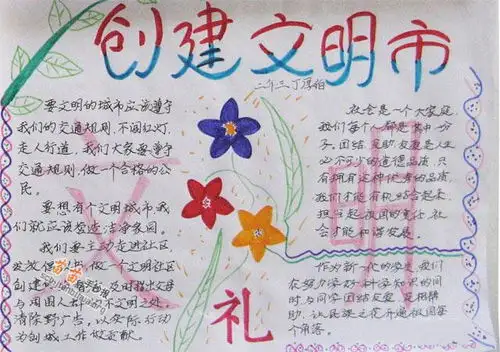 创建文明市
二年三 丁
要文明的城市应该遵守
我们的交通规则,不闯红灯,
走人行道,我们大家要遵守
交通规则,做一个合格的公
民。
要想有个文明城市,我
们就应该营造洁净家园,
我们要主动走进社区
发放 做一文明社区
创建 及时指出父母
与周围人群的不文明之处,
清除野广告,以实际行动
为创城工作做贡献。
社会是一个大家庭,
我们每个人都是其中一分
子,团结、互助、友爱是人生
必不可少的道德品质,只
有拥有这种优秀的品质,
我们才能有机结合起来,
担当起祖国的重任,社
会才能和谐发展。
作为新一代的学生,我们
在努力学好科学知识的同
时,与同学团结友爱,互相帮
助,让民族之花开遍祖国每
个角落。
文
明
礼